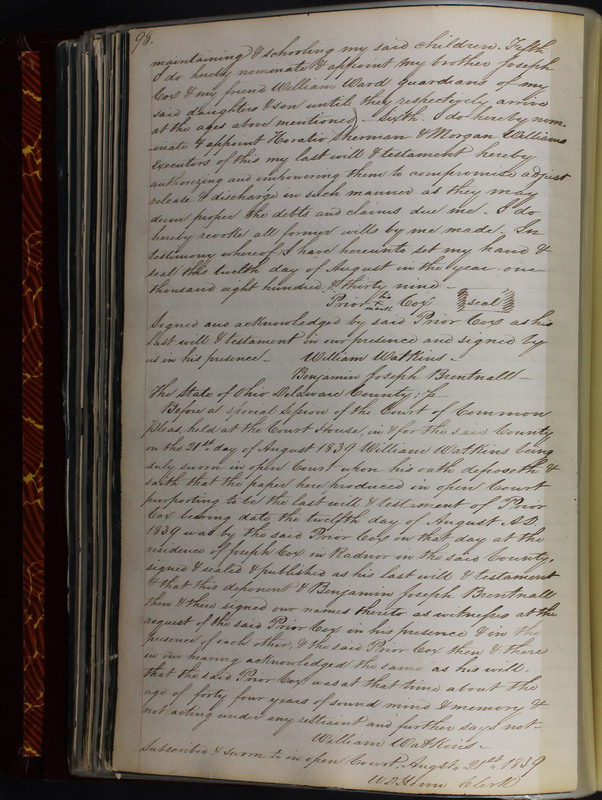 98.
maintaining & schooling my said children. Fifth
I do hereby nominate & appoint my brother Joseph
Cox & my friend William Ward guardians of my
said daughters & son until they respectively arrive
at the ages above mentioned. Sixth. I do hereby nom-
-inate & appoint Horatio Sherman & Morgan Williams
executors of this my last will & testament hereby
authorizing and empowering them to compromise adjust
release & discharge in such manner as they may
deem proper the debts and claims due me. I do
hereby revoke all former wills by me made. In
testimony whereof I have hereunto set my hand &
seal this twelfth day of August in the year one
thousand eight hundred & thirty nine.
his
Prior + Cox seal
mark
Signed and acknowledged by said Prior Cox as his
last will & testament in our presence and signed by
us in his presence. William Watkins.
Benjamin Joseph Brentnall
The State of Ohio Delaware County; ss
Before a special session of the Court of Common
pleas, held at the Court House, in & for the said County
on the 21st day of August 1839 William Watkins being
duly sworn in open Court upon his oath deposeth &
saith that the paper here produced in open Court
purporting to be the last will & testament of Prior
Cox bearing date the twelfth day of August A.D.
1839 was by the said Prior Cox on that day at the
residence of Joseph Cox in Radnor in the said County,
signed & sealed & published as his last will & testament
& that this deponent & Benjamin Joseph Brentnall
then & there signed our names thereto as witnesses at the
request of the said Prior Cox in his presence & in the
presence of each other, & the said Prior Cox then & there
in our hearing acknowledged the same as his will,
that the said Prior Cox was at that time about the
age of forty four years of sound mind & memory &
not acting under any restraint and further says not-
William Watkins.
Subscribed & sworn to in open Court, Augst. 21st 1839
Clerk